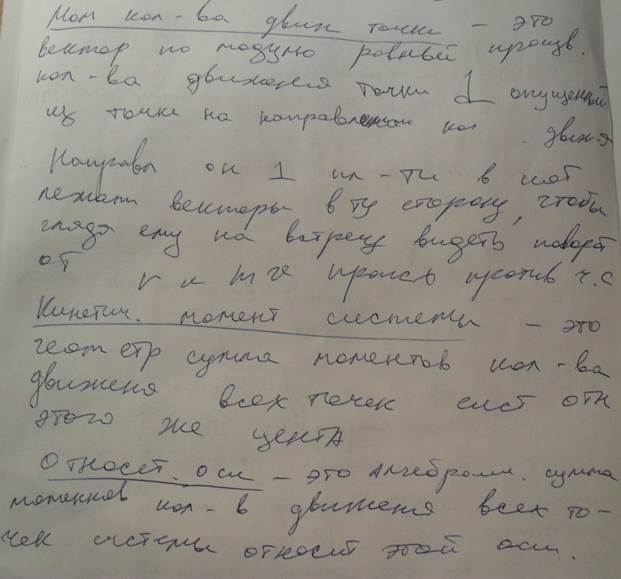 Мом кол-ва движ точки - это
вектор по модулю равный произв.
кол-ва движения точки ⊥ опущенный
из точки на направление кол движ-я
Направл он ⊥ пл-ти в кот
лежат векторы в ту сторону, чтобы
глядя ему на встречу видеть поворот
от r к mv происх против ч.с
Кинетич. момент системы - это
геометр сумма моментов кол-ва
движеня всех точек сист отн
этого же центА
Относит. оси - это Алгебраич. сумма
моментов кол-в движеня всех то-
чек системы относит этой оси.